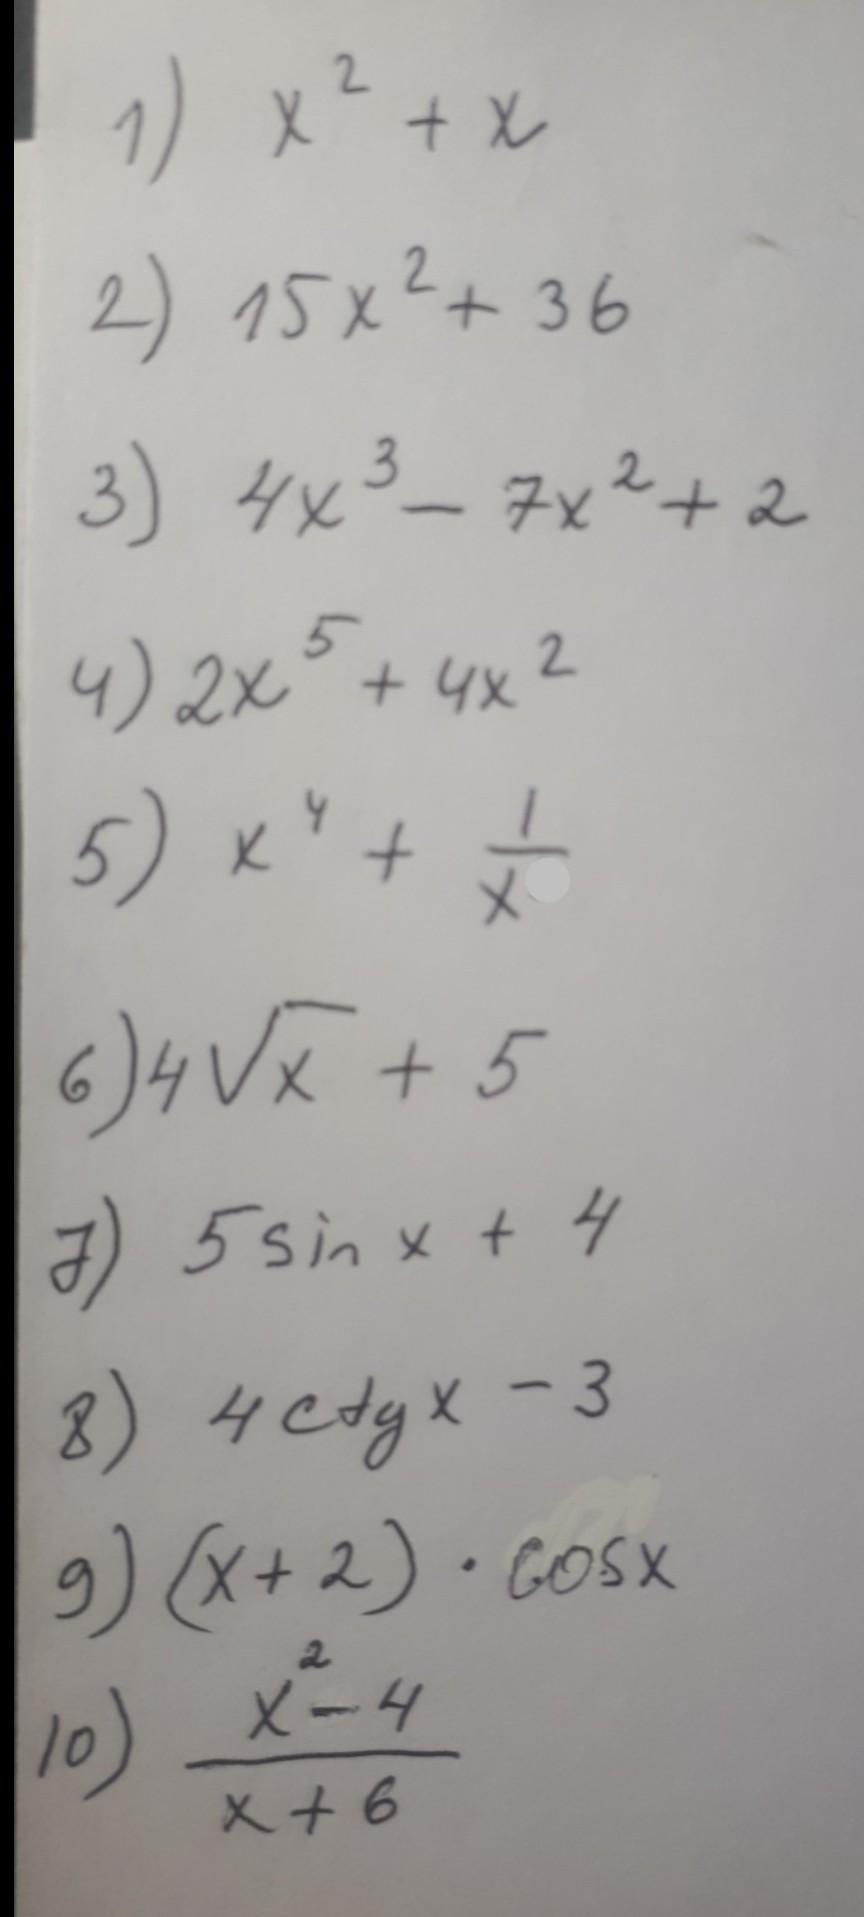 1) x² + x
2) 15x² + 36
3) 4x³ - 7x² + 2
4) 2x⁵ + 4x²
5) x⁴ + 1/x
6) 4√x + 5
7) 5sin x + 4
8) 4ctgx - 3
9) (x+2) · cosx
10) (x² - 4)/(x + 6)